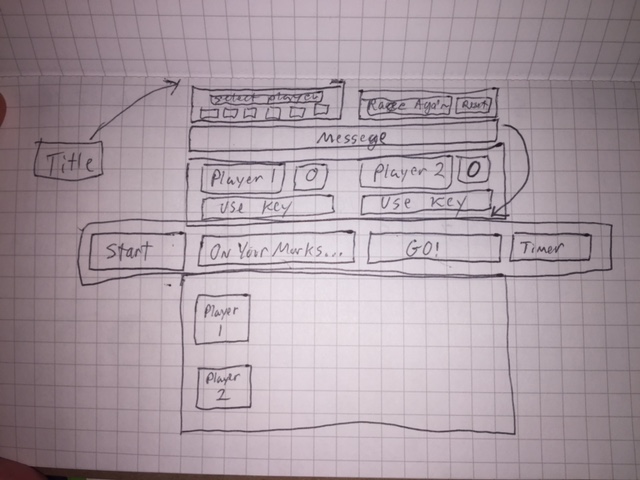 Select player
Race Again Reset
Message
Title
Player 1 0 Player 2 0
Use Key Use Key
Start On Your Marks... GO! Timer
Player
1
Player
2